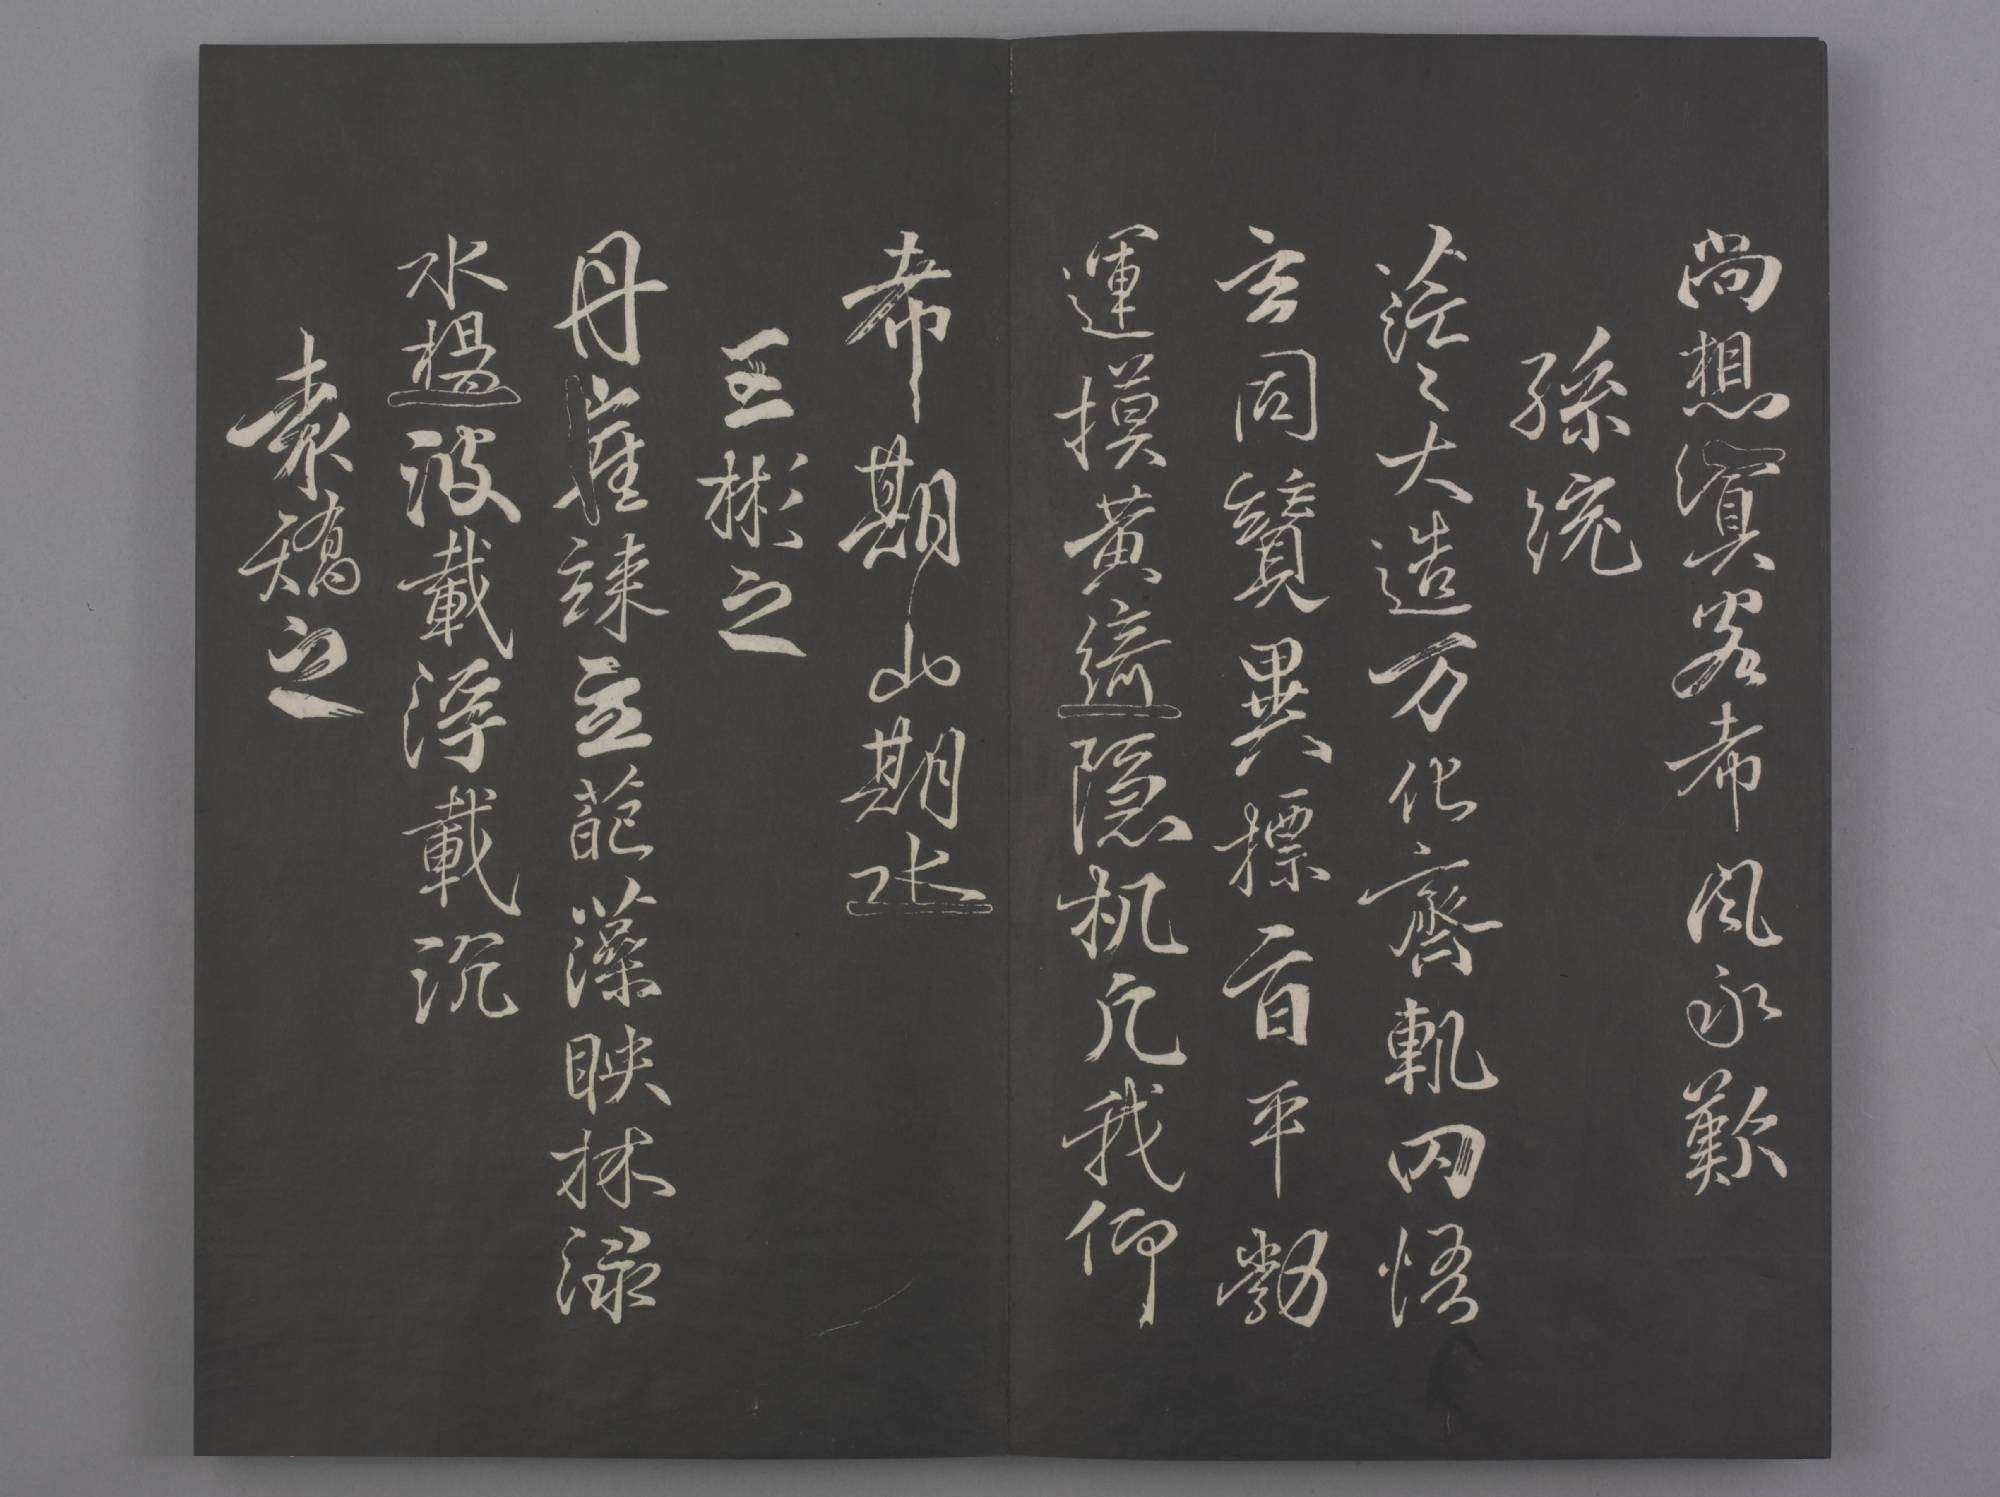 尚想冥客希風永歎
孫統
茫〻大造万化齊軌罔悟
玄同競異摽旨平勃
運摸黃綺隱机凡我仰
希期山期水
王彬之
丹崖竦立葩藻映林淥
水楊波載浮載沉
袁矯之